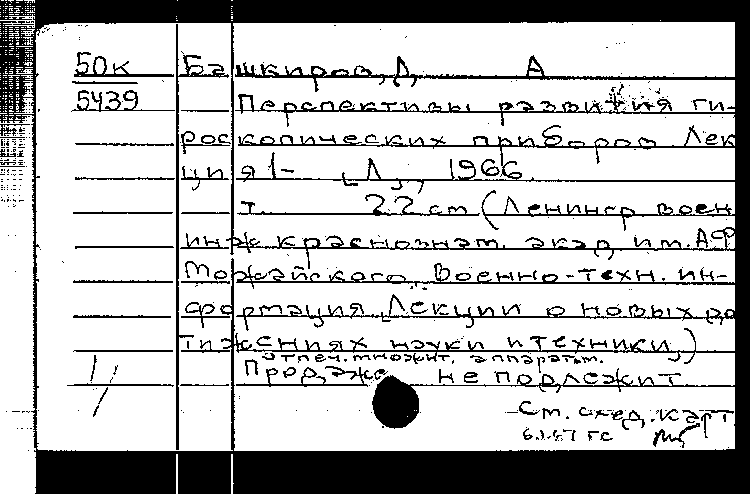 50к Башкиров, Д. А
5439 Перспективы развития ги-
роскопических приборов Лек
ция 1- [Л.], 1966.
т. 22 см (Ленингр. воен
инж краснознам. акад. им. АФ
Можайского. Военно-техн. ин-
формация. Лекции о новых до
тижениях науки и техники.)
Отпеч. множит. аппаратом.
Продаже не подлежит
См. след. карт
6.1.67 гс